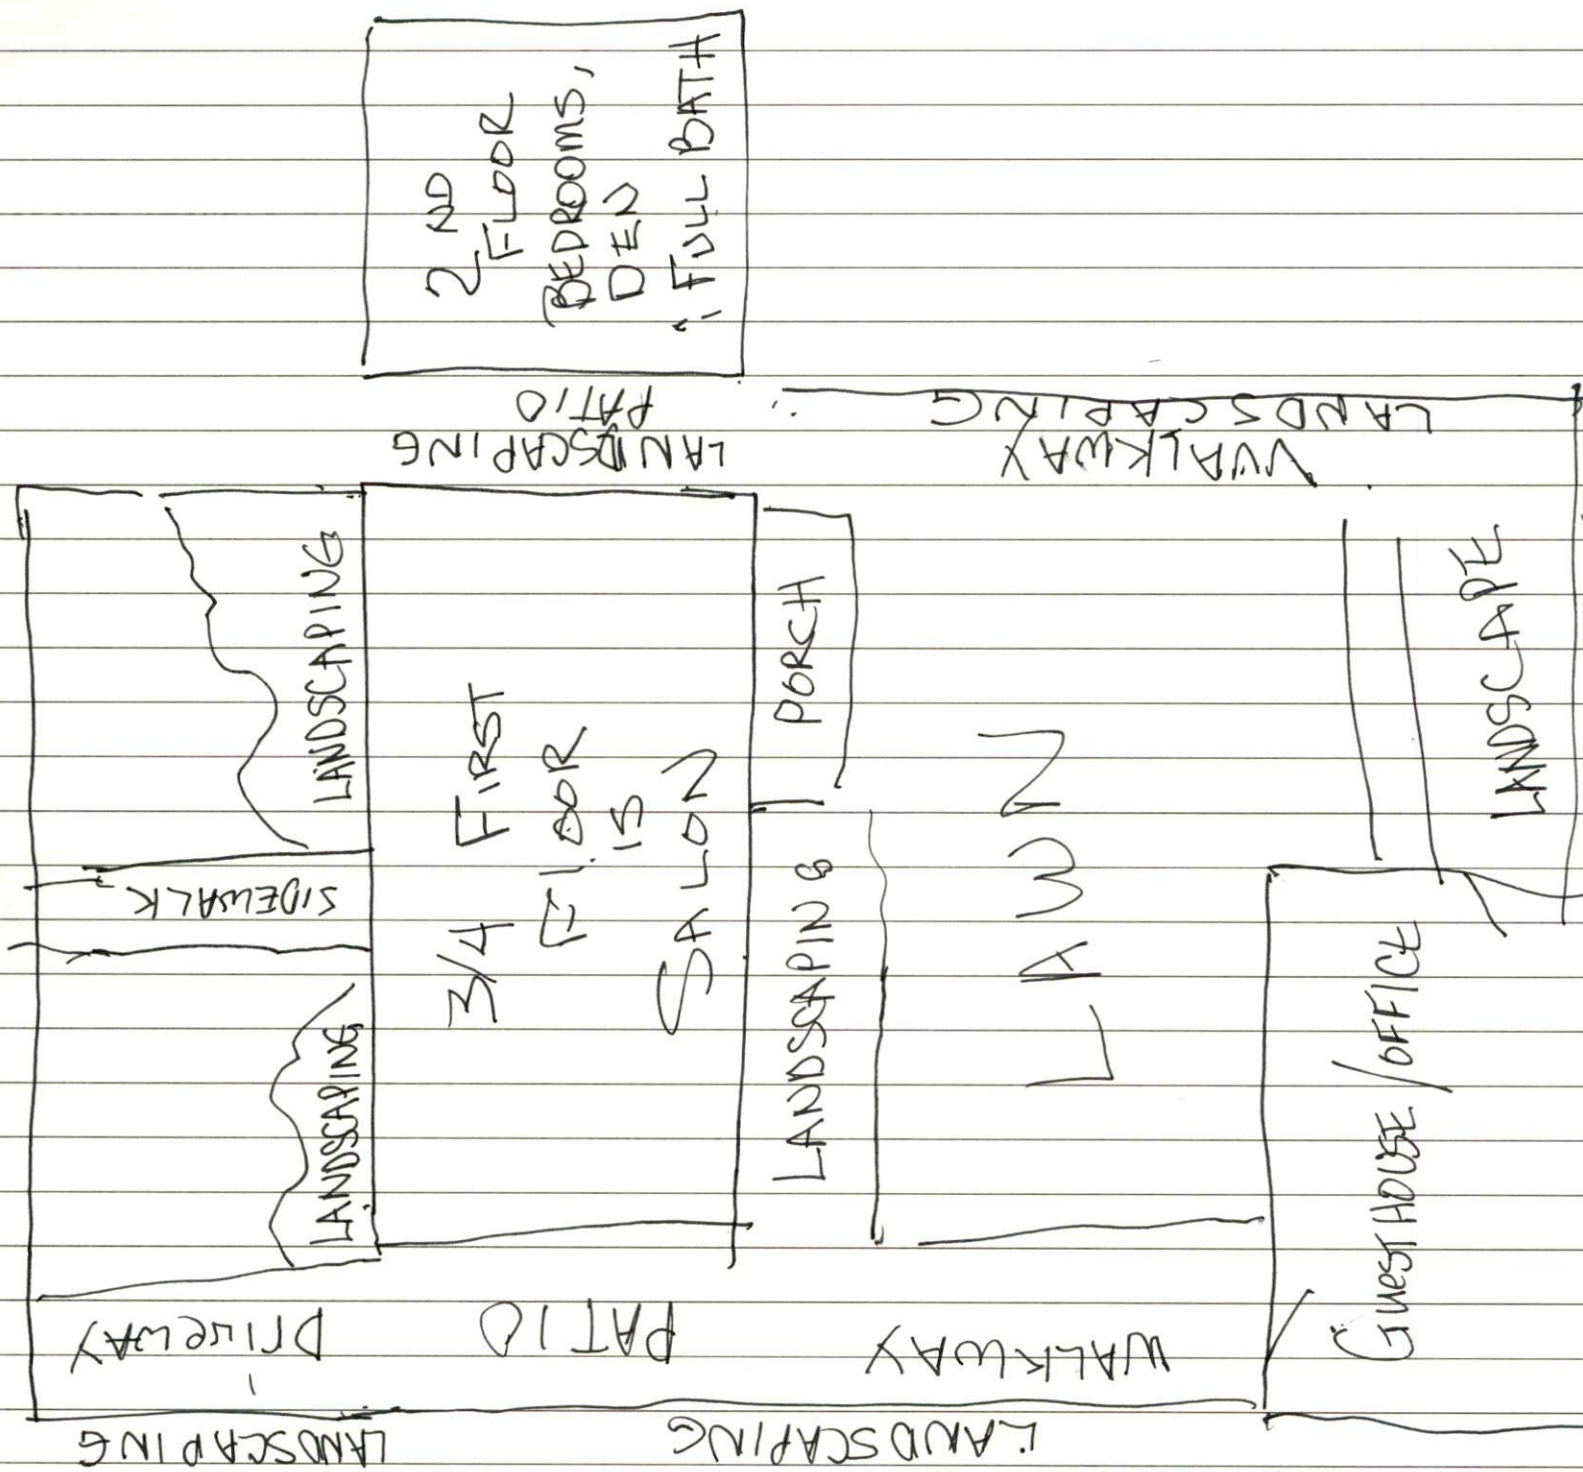 2ND
FLOOR
BEDROOMS,
DEN
FULL BATH
PATIO
LANDSCAPING
LANDSCAPING
WALKWAY
LANDSCAPING
SIDEWALK
LANDSCAPING
3/4 FIRST
FLOOR
IS
SALON
PORCH
LANDSCAPING
LAWN
LANDSCAPE
GUESTHOUSE/OFFICE
DriveWAY
PATIO
WALKWAY
LANDSCAPING
LANDSCAPING